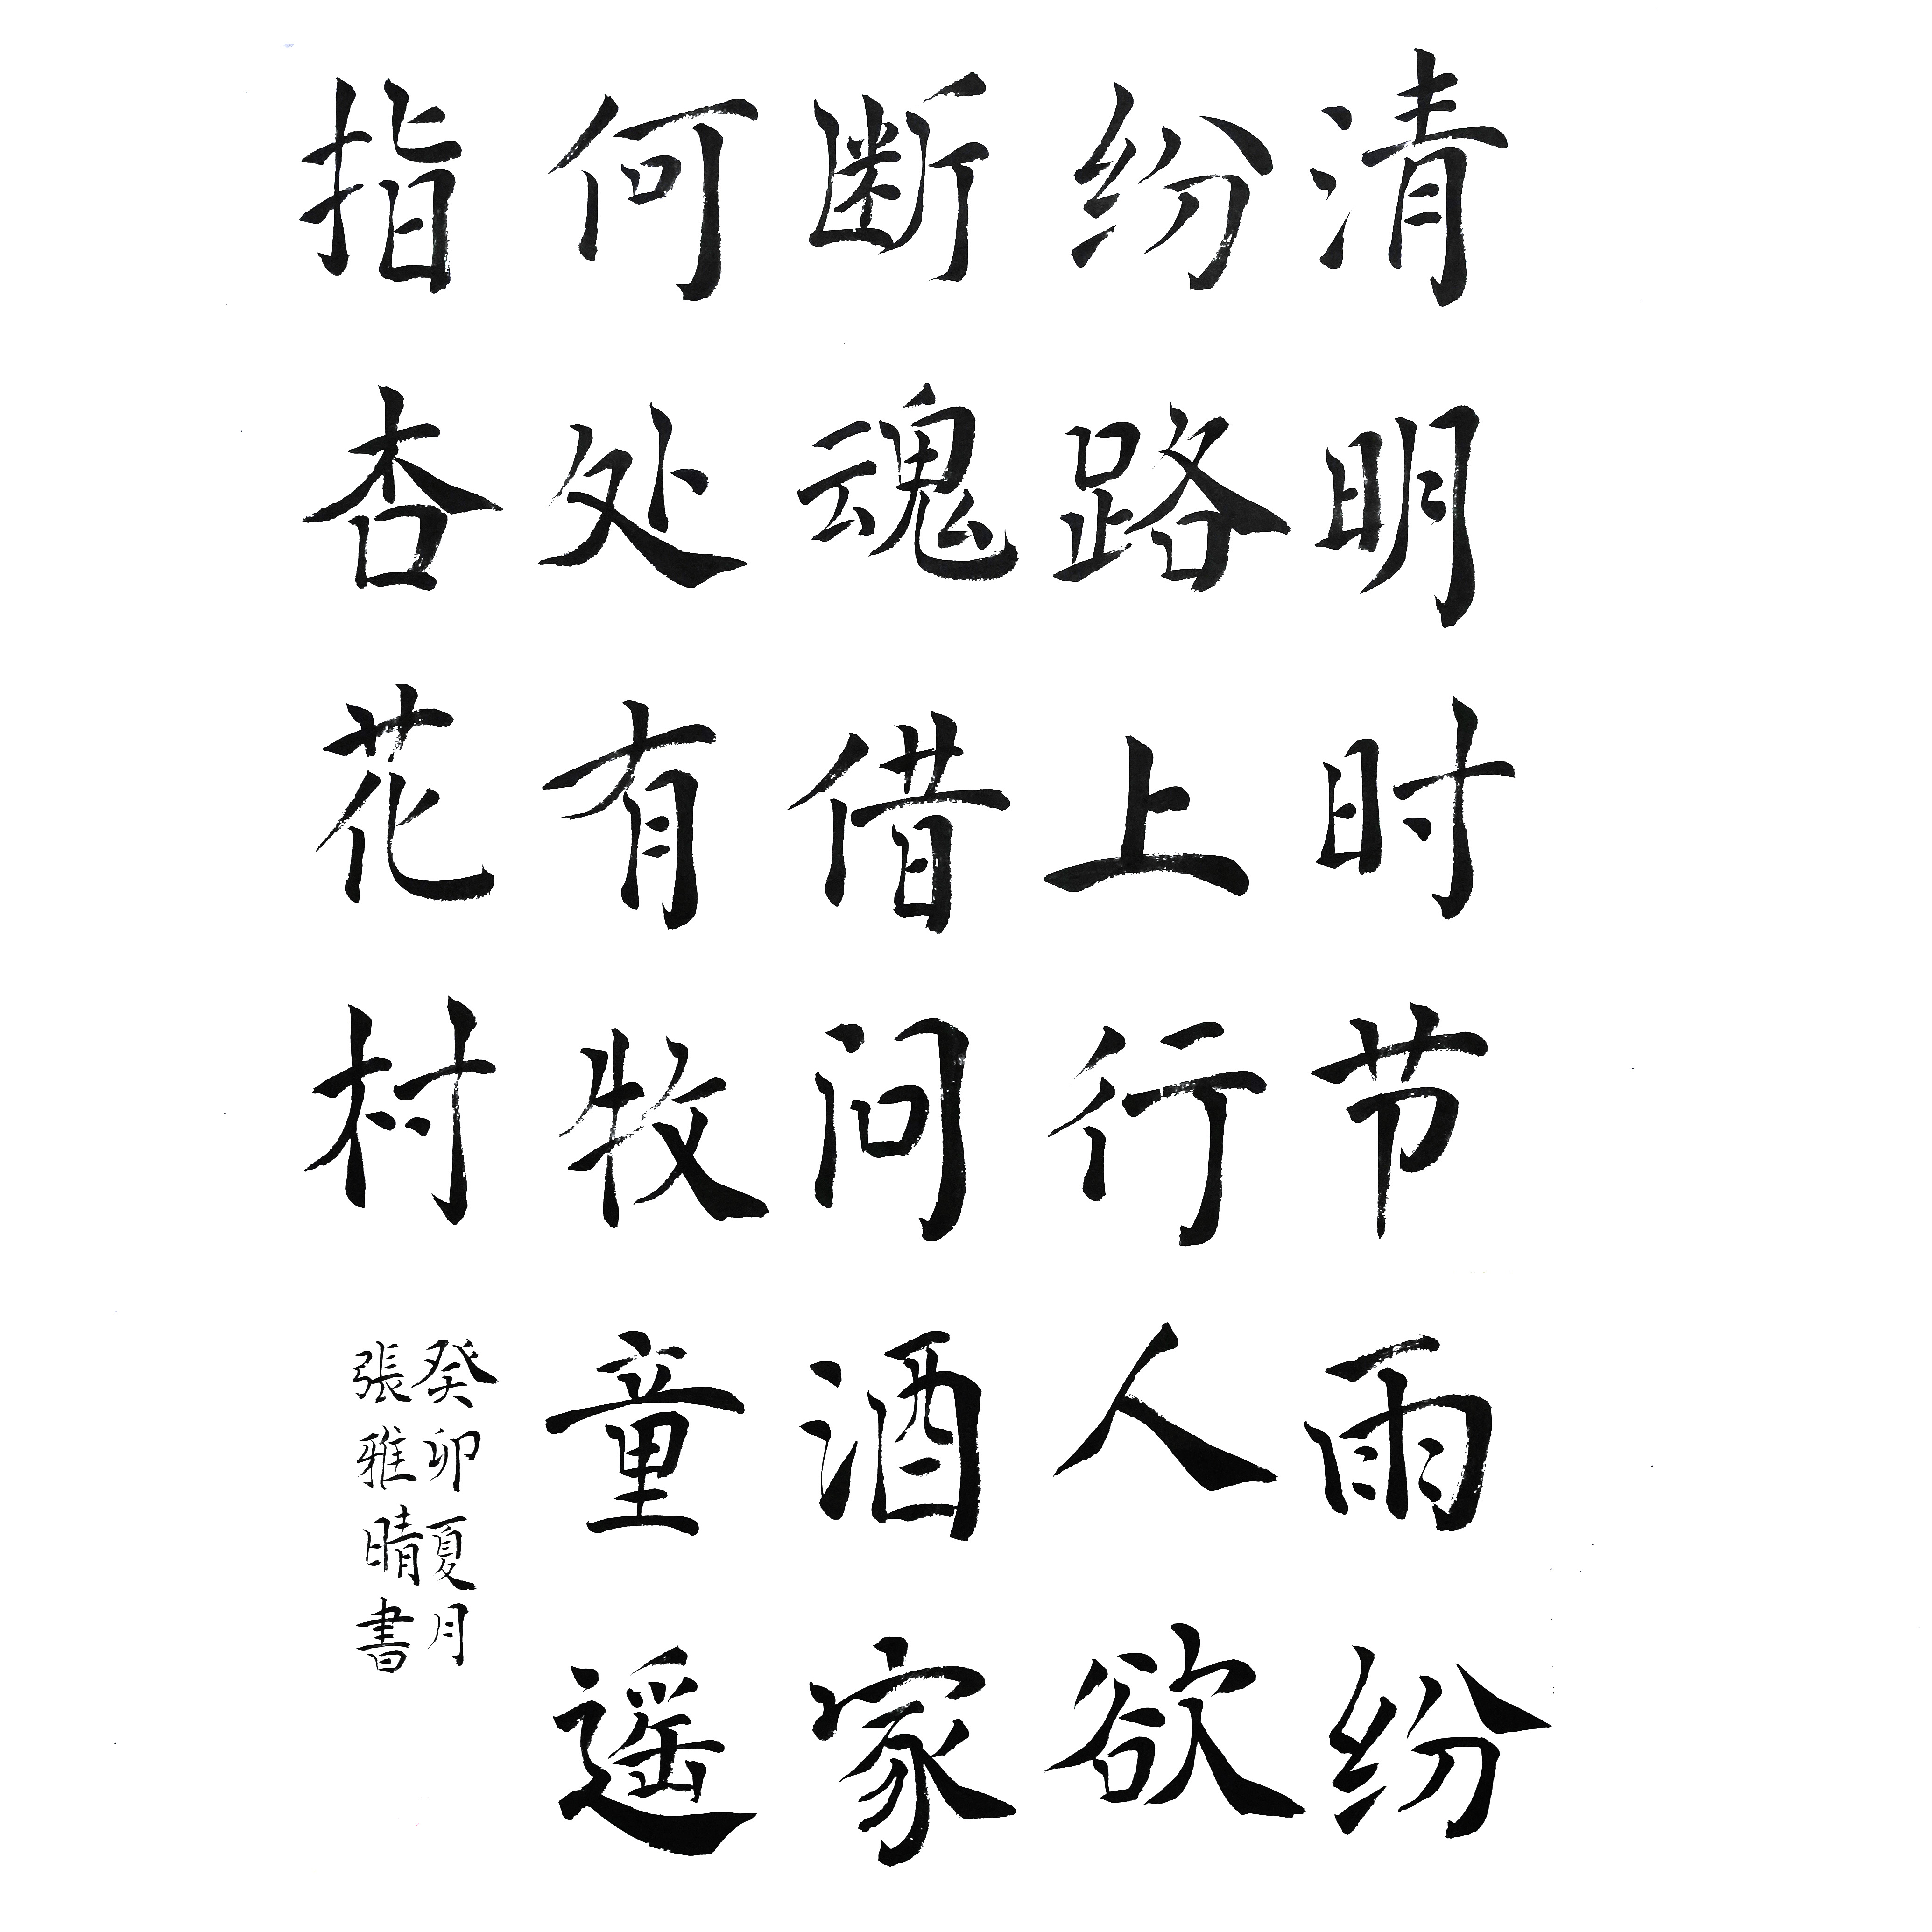 清明时节雨纷
纷路上行人欲
断魂借问酒家
何处有牧童遥
指杏花村
癸卯夏月
張雅晴書